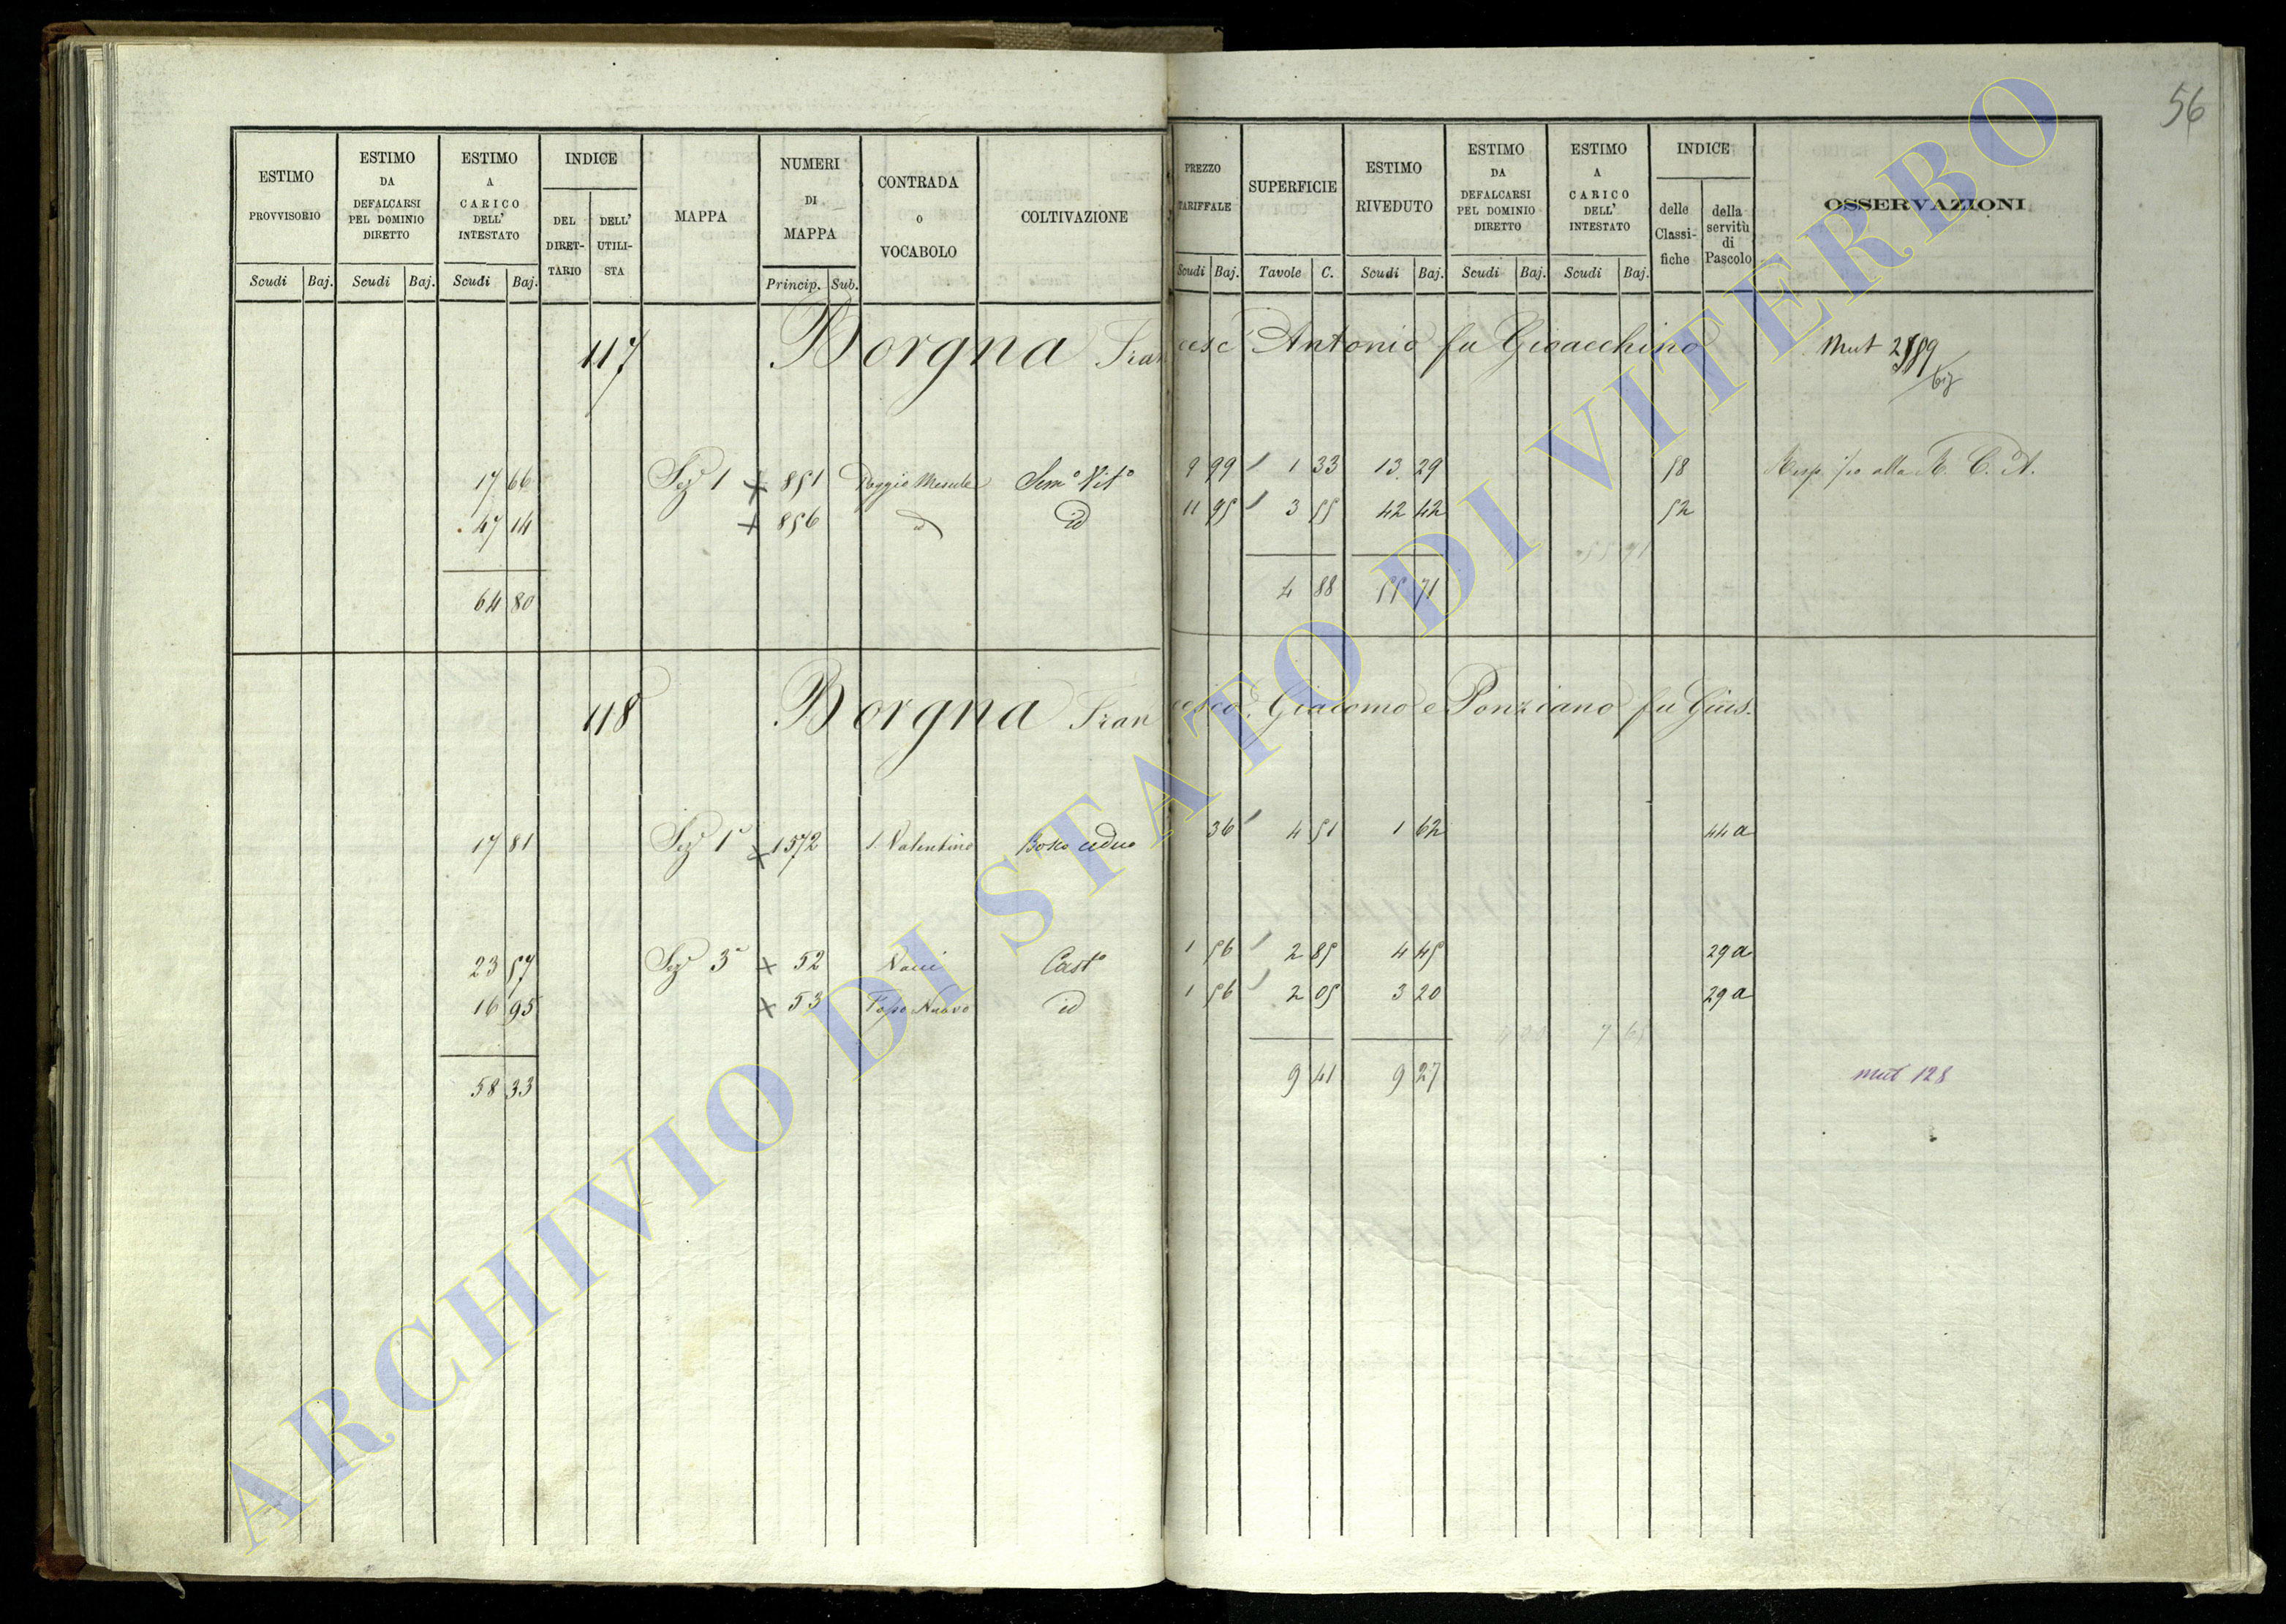 56
ESTIMO PROVVISORIO
ESTIMO DA DEFALCARSI PEL DOMINIO DIRETTO
ESTIMO A CARICO DELL' INTESTATO
INDICE
DEL DIRETTARIO
DELL' UTILISTA
MAPPA
NUMERI DI MAPPA
CONTRADA O VOCABOLO
COLTIVAZIONE
PREZZO TARIFFALE
SUPERFICIE
ESTIMO RIVEDUTO
ESTIMO DA DEFALCARSI PEL DOMINIO DIRETTO
ESTIMO A CARICO DELL' INTESTATO
INDICE
delle Classifiche
della servitù di Pascolo
OSSERVAZIONI
Scudi Baj. Scudi Baj. Scudi Baj. Princip. Sub. Scudi Baj. Tavole C. Scudi Baj. Scudi Baj. Scudi Baj.
117 Borgna Francesc Antonio fu Gioacchino Mut
17 66 Sez 1 × 851 Poggio Sem° Vit° 9 99 1 33 13 29 58 alla R. C. A.
47 14 × 856 id id 11 95 3 55 42 42 52
55 71
64 80 4 88 55 71
118 Borgna Francesco, Giacomo e Ponziano fu Gius.
17 81 Sez 1ª × 1572 S. Valentino Bosco ceduo 36 4 51 1 62 44 a
23 57 Sez 3ª × 52 Cast° 1 56 2 85 4 45 29 a
16 95 × 53 Fosso Nuovo id 1 56 2 05 3 20 29 a
58 33 9 41 9 27 mut 128
ARCHIVIO DI STATO DI VITERBO